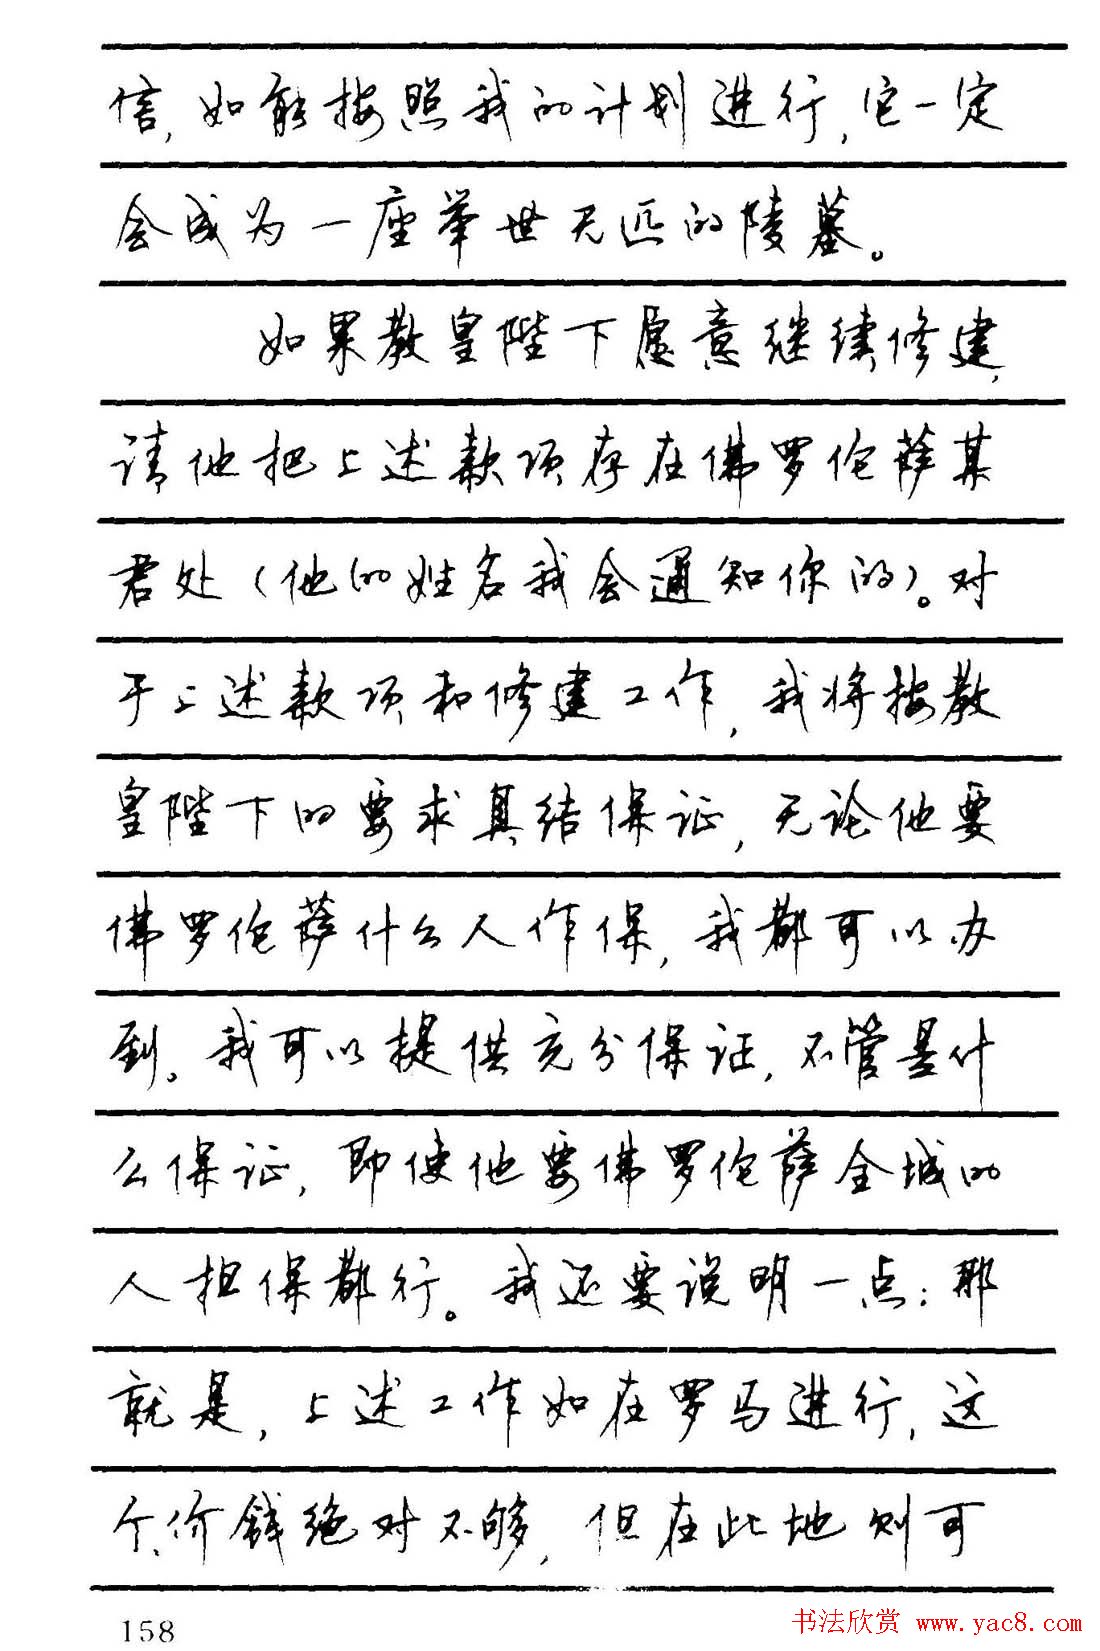 信,如能按照我的计划进行,它一定
会成为一座举世无匹的陵墓。
如果教皇陛下愿意继续修建,
请他把上述款项存在佛罗伦萨某
君处(他的姓名我会通知你的)。对
于上述款项和修建工作,我将按教
皇陛下的要求具结保证,无论他要
佛罗伦萨什么人作保,我都可以办
到。我可以提供充分保证,不管是什
么保证,即使他要佛罗伦萨全城的
人担保都行。我还要说明一点:那
就是,上述工作如在罗马进行,这
个价钱绝对不够,但在此地则可
158
书法欣赏 www.yac8.com